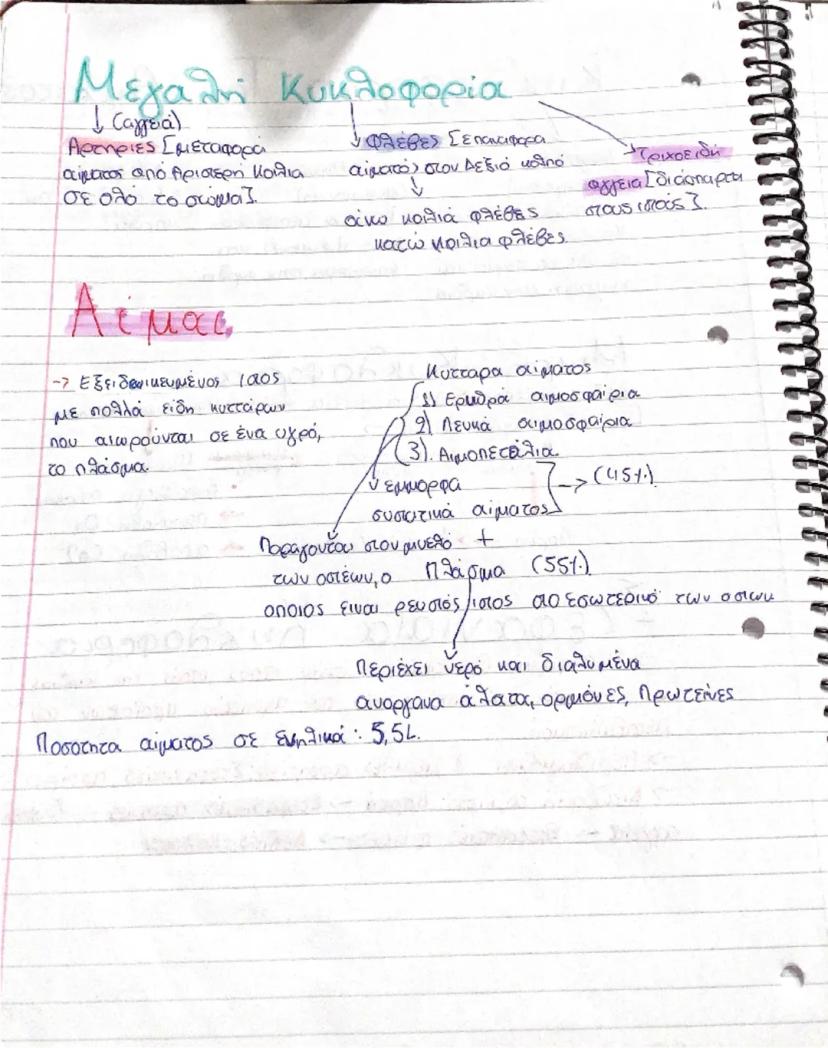 Μεγαλή Κυκλοφορία
(αγγειά)
Αρτηρίες [μεταφορά
αίματος από Αριστερή κοιλια
σε όλό το σώμα].
Φλέβες [επαναφορα
αίματος στον Δεξιό κολπό
άνω κοιλιά φλέβες
κατώ κοιλια φλέβες.
Τριχοειδή
αγγεία [διάσπαρτα
στους ιστούς].
Αίμα
→ Εξειδεικευμένος ιστος
με πολλά είδη κυττάρων
που αιωρούνται σε ένα υγρό,
το πλάσμα.
Κυτταρα αίματος
1) Ερυθρά αιμοσφαίρια
2) Λευκά αιμοσφαίρια
3). Αιμοπετάλια.
εμμορφα
συστατικά αίματος → (45%)
Παράγονται στον μυελό +
των οστέων, ο Πλάσμα (55%)
οποιος ειναι ρευστός ιστος στο εσωτερικό των οστων
Περιέχει νερό και διαλυμένα
ανοργανα άλατα, ορμόνες, Πρωτεϊνες
Ποσοτητα αίματος σε ενηλικά: 5,5L.